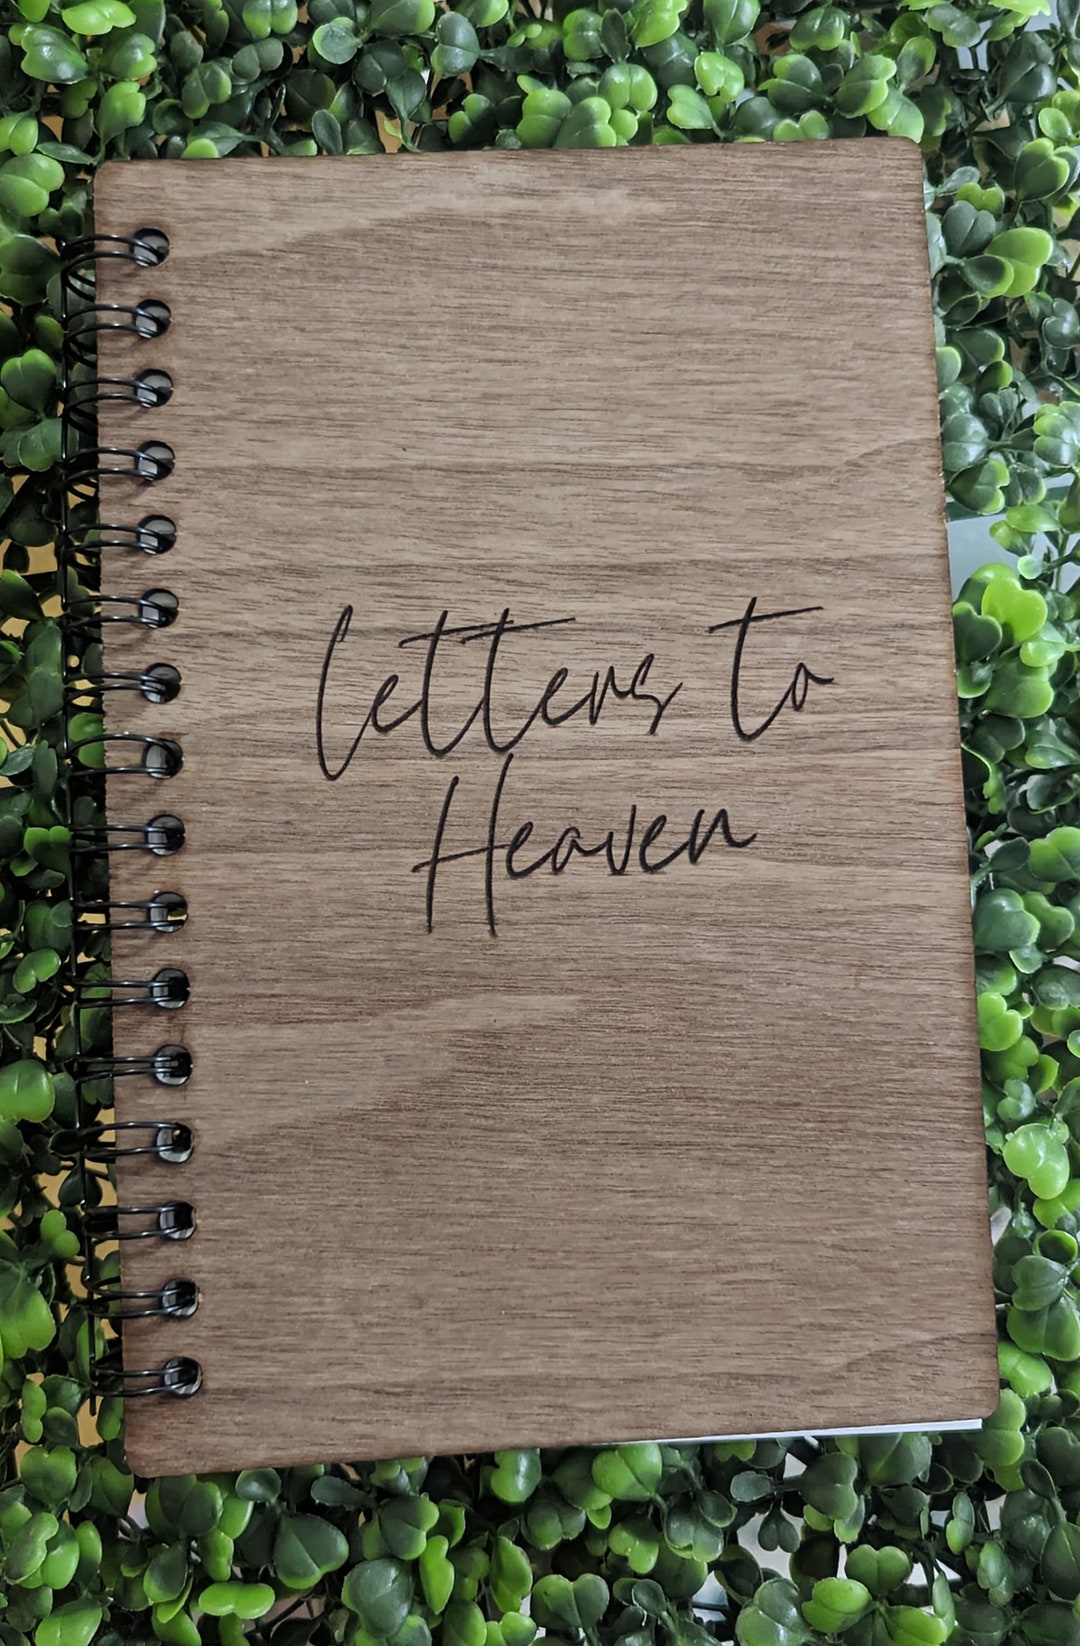 Letters to
Heaven